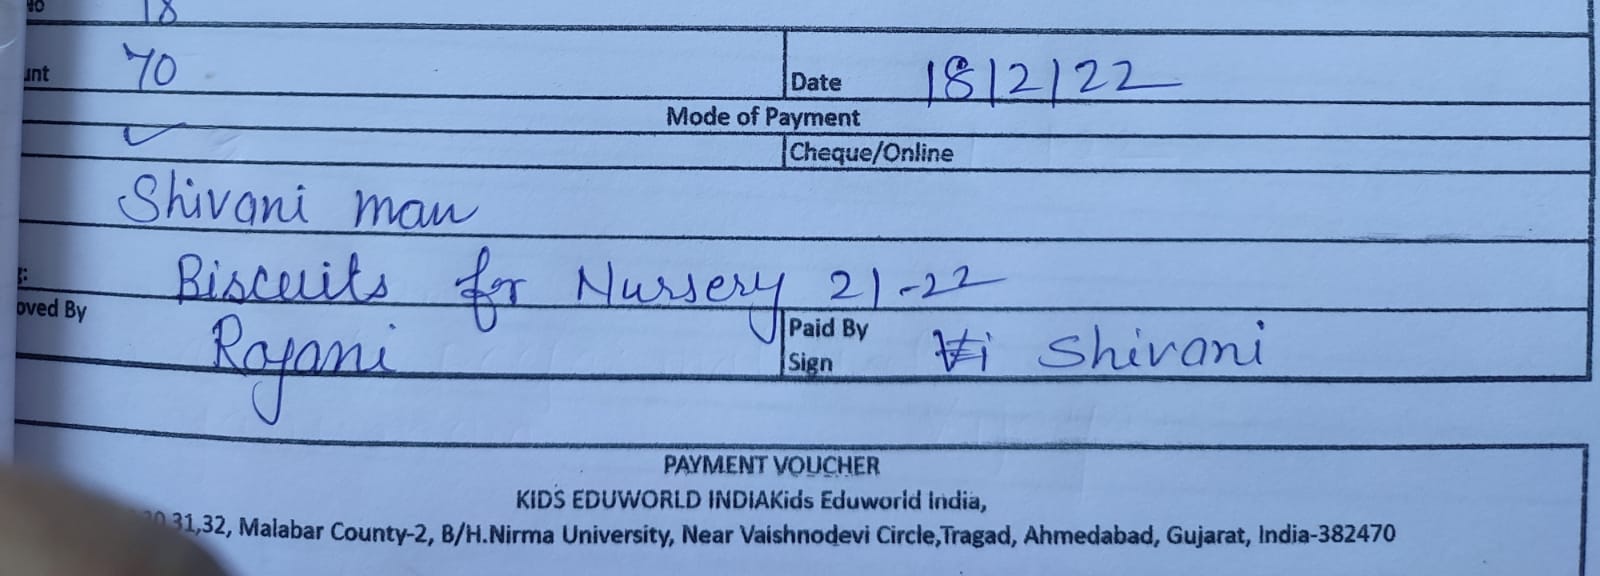 No 18
unt 70 Date 18/2/22
Mode of Payment
Cheque/Online
Shivani mam
Biscuits for Nursery 21-22
oved By Rajani Paid By Shivani
Sign
PAYMENT VOUCHER
KIDS EDUWORLD INDIAKids Eduworld India,
31,32, Malabar County-2, B/H.Nirma University, Near Vaishnodevi Circle,Tragad, Ahmedabad, Gujarat, India-382470